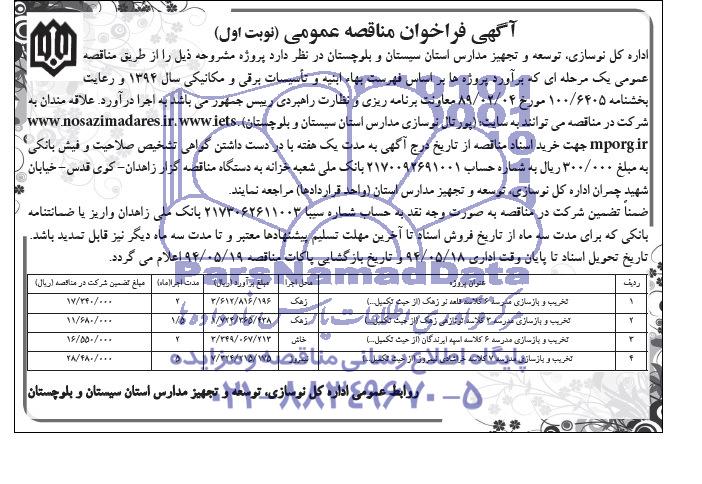 آگهی فراخوان مناقصه عمومی (نوبت اول)
اداره کل نوسازی، توسعه و تجهیز مدارس استان سیستان و بلوچستان در نظر دارد پروژه مشروحه ذیل را از طریق مناقصه
عمومی یک مرحله ای که برآورد پروژه ها بر اساس فهرست بهاء ابنیه و تأسیسات برقی و مکانیکی سال ۱۳۹۴ و رعایت
بخشنامه ۱۰۰/۶۴۰۵ مورخ ۸۹/۰۲/۰۴ معاونت برنامه ریزی و نظارت راهبردی رییس جمهور می باشد به اجرا درآورد. علاقه مندان به
شرکت در مناقصه می توانند به سایت: (پورتال نوسازی مدارس استان سیستان و بلوچستان) www.nosazimadares.ir، www.iets
mporg.ir جهت خرید اسناد مناقصه از تاریخ درج آگهی به مدت یک هفته با در دست داشتن گواهی تشخیص صلاحیت و فیش بانکی
به مبلغ ۳۰۰/۰۰۰ ریال به شماره حساب ۲۱۷۰۰۹۲۶۹۱۰۰۱ بانک ملی شعبه خزانه به دستگاه مناقصه گزار زاهدان-کوی قدس-خیابان
شهید چمران اداره کل نوسازی، توسعه و تجهیز مدارس استان (واحد قراردادها) مراجعه نمایند.
ضمناً تضمین شرکت در مناقصه به صورت وجه نقد به حساب شماره سیبا ۲۱۷۳۰۶۲۶۱۱۰۰۳ بانک ملی زاهدان واریز یا ضمانتنامه
بانکی که برای مدت سه ماه از تاریخ فروش اسناد تا آخرین مهلت تسلیم پیشنهادها معتبر و تا مدت سه ماه دیگر نیز قابل تمدید باشد.
تاریخ تحویل اسناد تا پایان وقت اداری ۹۴/۰۵/۱۸ و تاریخ بازگشایی پاکات مناقصه ۹۴/۰۵/۱۹ اعلام می گردد.
ParsNamadData
ردیف عنوان پروژه محل اجرا مبلغ برآورد (ریال) مدت اجرا(ماه) مبلغ تضمین شرکت در مناقصه (ریال)
۱ تخریب و بازسازی مدرسه ۶ کلاسه قلعه نو زهک (از حیث تکمیل...) زهک ۳/۶۱۲/۸۱۶/۱۹۶ ۲ ۱۷/۳۴۰/۰۰۰
۲ تخریب و بازسازی مدرسه ۳ کلاسه زهک (از حیث تکمیل...) زهک ۱/۵ ۱۱/۶۸۰/۰۰۰
۳ تخریب و بازسازی مدرسه ۶ کلاسه اسپه ایرندگان (از حیث تکمیل...) خاش ۳/۳۴۹/۰۶۷/۲۱۳ ۲ ۱۶/۵۵۰/۰۰۰
۴ تخریب و بازسازی مدرسه ۷ کلاسه نیمروز (از حیث تکمیل...) نیمروز ۵ ۲۸/۴۸۰/۰۰۰
پایگاه اطلاع رسانی مناقصه و مزایده
روابط عمومی اداره کل نوسازی، توسعه و تجهیز مدارس استان سیستان و بلوچستان
۰۲۱-۸۸۳۴۹۶۷۰-۵